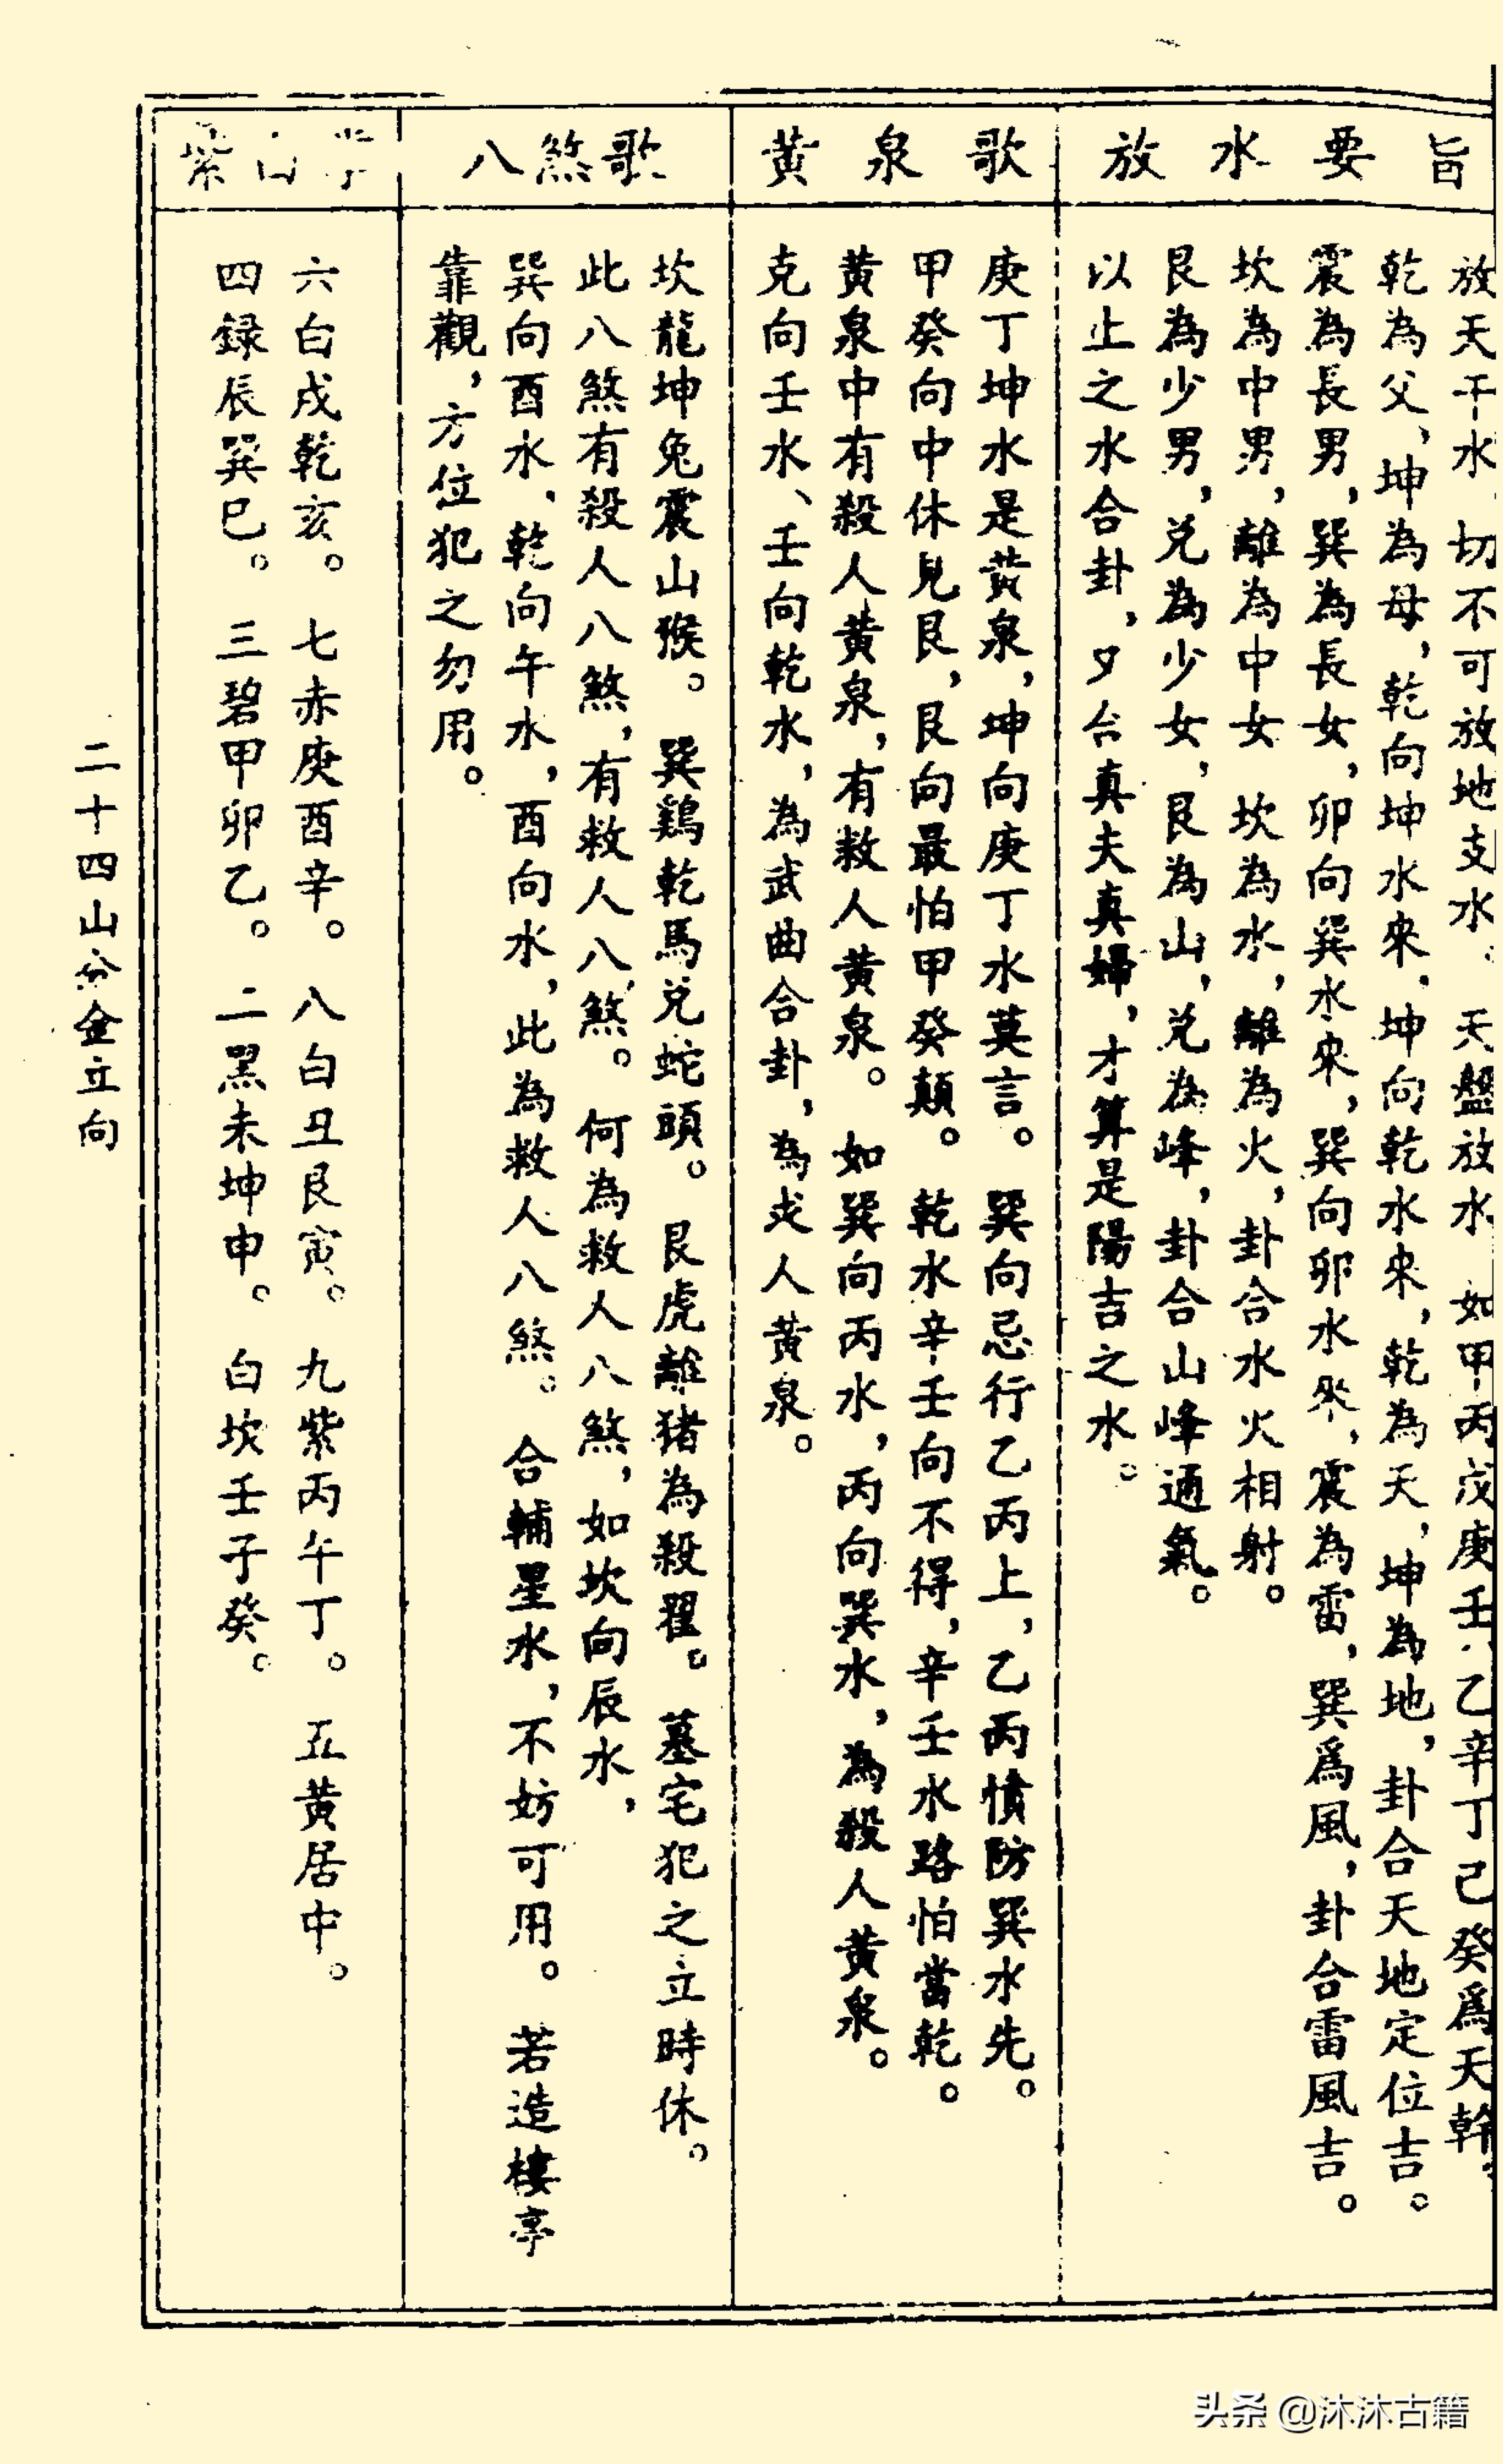 放水要旨
放天干水,切不可放地支水、天盤放水 如甲丙戊庚壬、乙辛丁己癸爲天幹。
乾為父、坤為母,乾向坤水來、坤向乾水來,乾為天,坤為地,卦合天地定位吉。
震為長男,巽為長女,卯向巽水來,巽向卯水來、震為雷,巽爲風,卦合雷風吉。
坎為中男,離為中女 坎為水,離為火,卦合水火相射。
艮為少男,兑為少女,艮為山,兑為峰,卦合山峰通氣。
以止之水合卦,夕台真夫真婦,才算是陽吉之水。
黄泉歌
庚丁坤水是黄泉,坤向庚丁水莫言。 巽向忌行乙丙上,乙丙慎防巽水先。
甲癸向中休見艮,艮向最怕甲癸顛。 乾水辛壬向不得,辛壬水路怕當乾。
黄泉中有殺人黄泉,有救人黄泉。 如巽向丙水,丙向巽水,為殺人黄泉。
克向壬水、壬向乾水,為武曲合卦,為人黄泉。
八煞歌
坎龍坤兔震山猴。 巽鷄乾馬兑蛇頭。 艮虎離猪為殺翟。 墓宅犯之立時休。
此八煞有殺人八煞,有救人八煞。 何為救人八煞,如坎向辰水,
巽向酉水,乾向午水,酉向水,此為救人八煞。 合輔星水,不妨可用。 若造樓亭
靠觀,方位犯之勿用。
紫白
六白戌乾亥。 七赤庚酉辛。 八白丑艮寅。 九紫丙午丁。 五黄居中。
四録辰巽巳。 三碧甲卯乙。 二黑未坤申。 白坎壬子癸。
二十四山分金立向
头条 @沐沐古籍